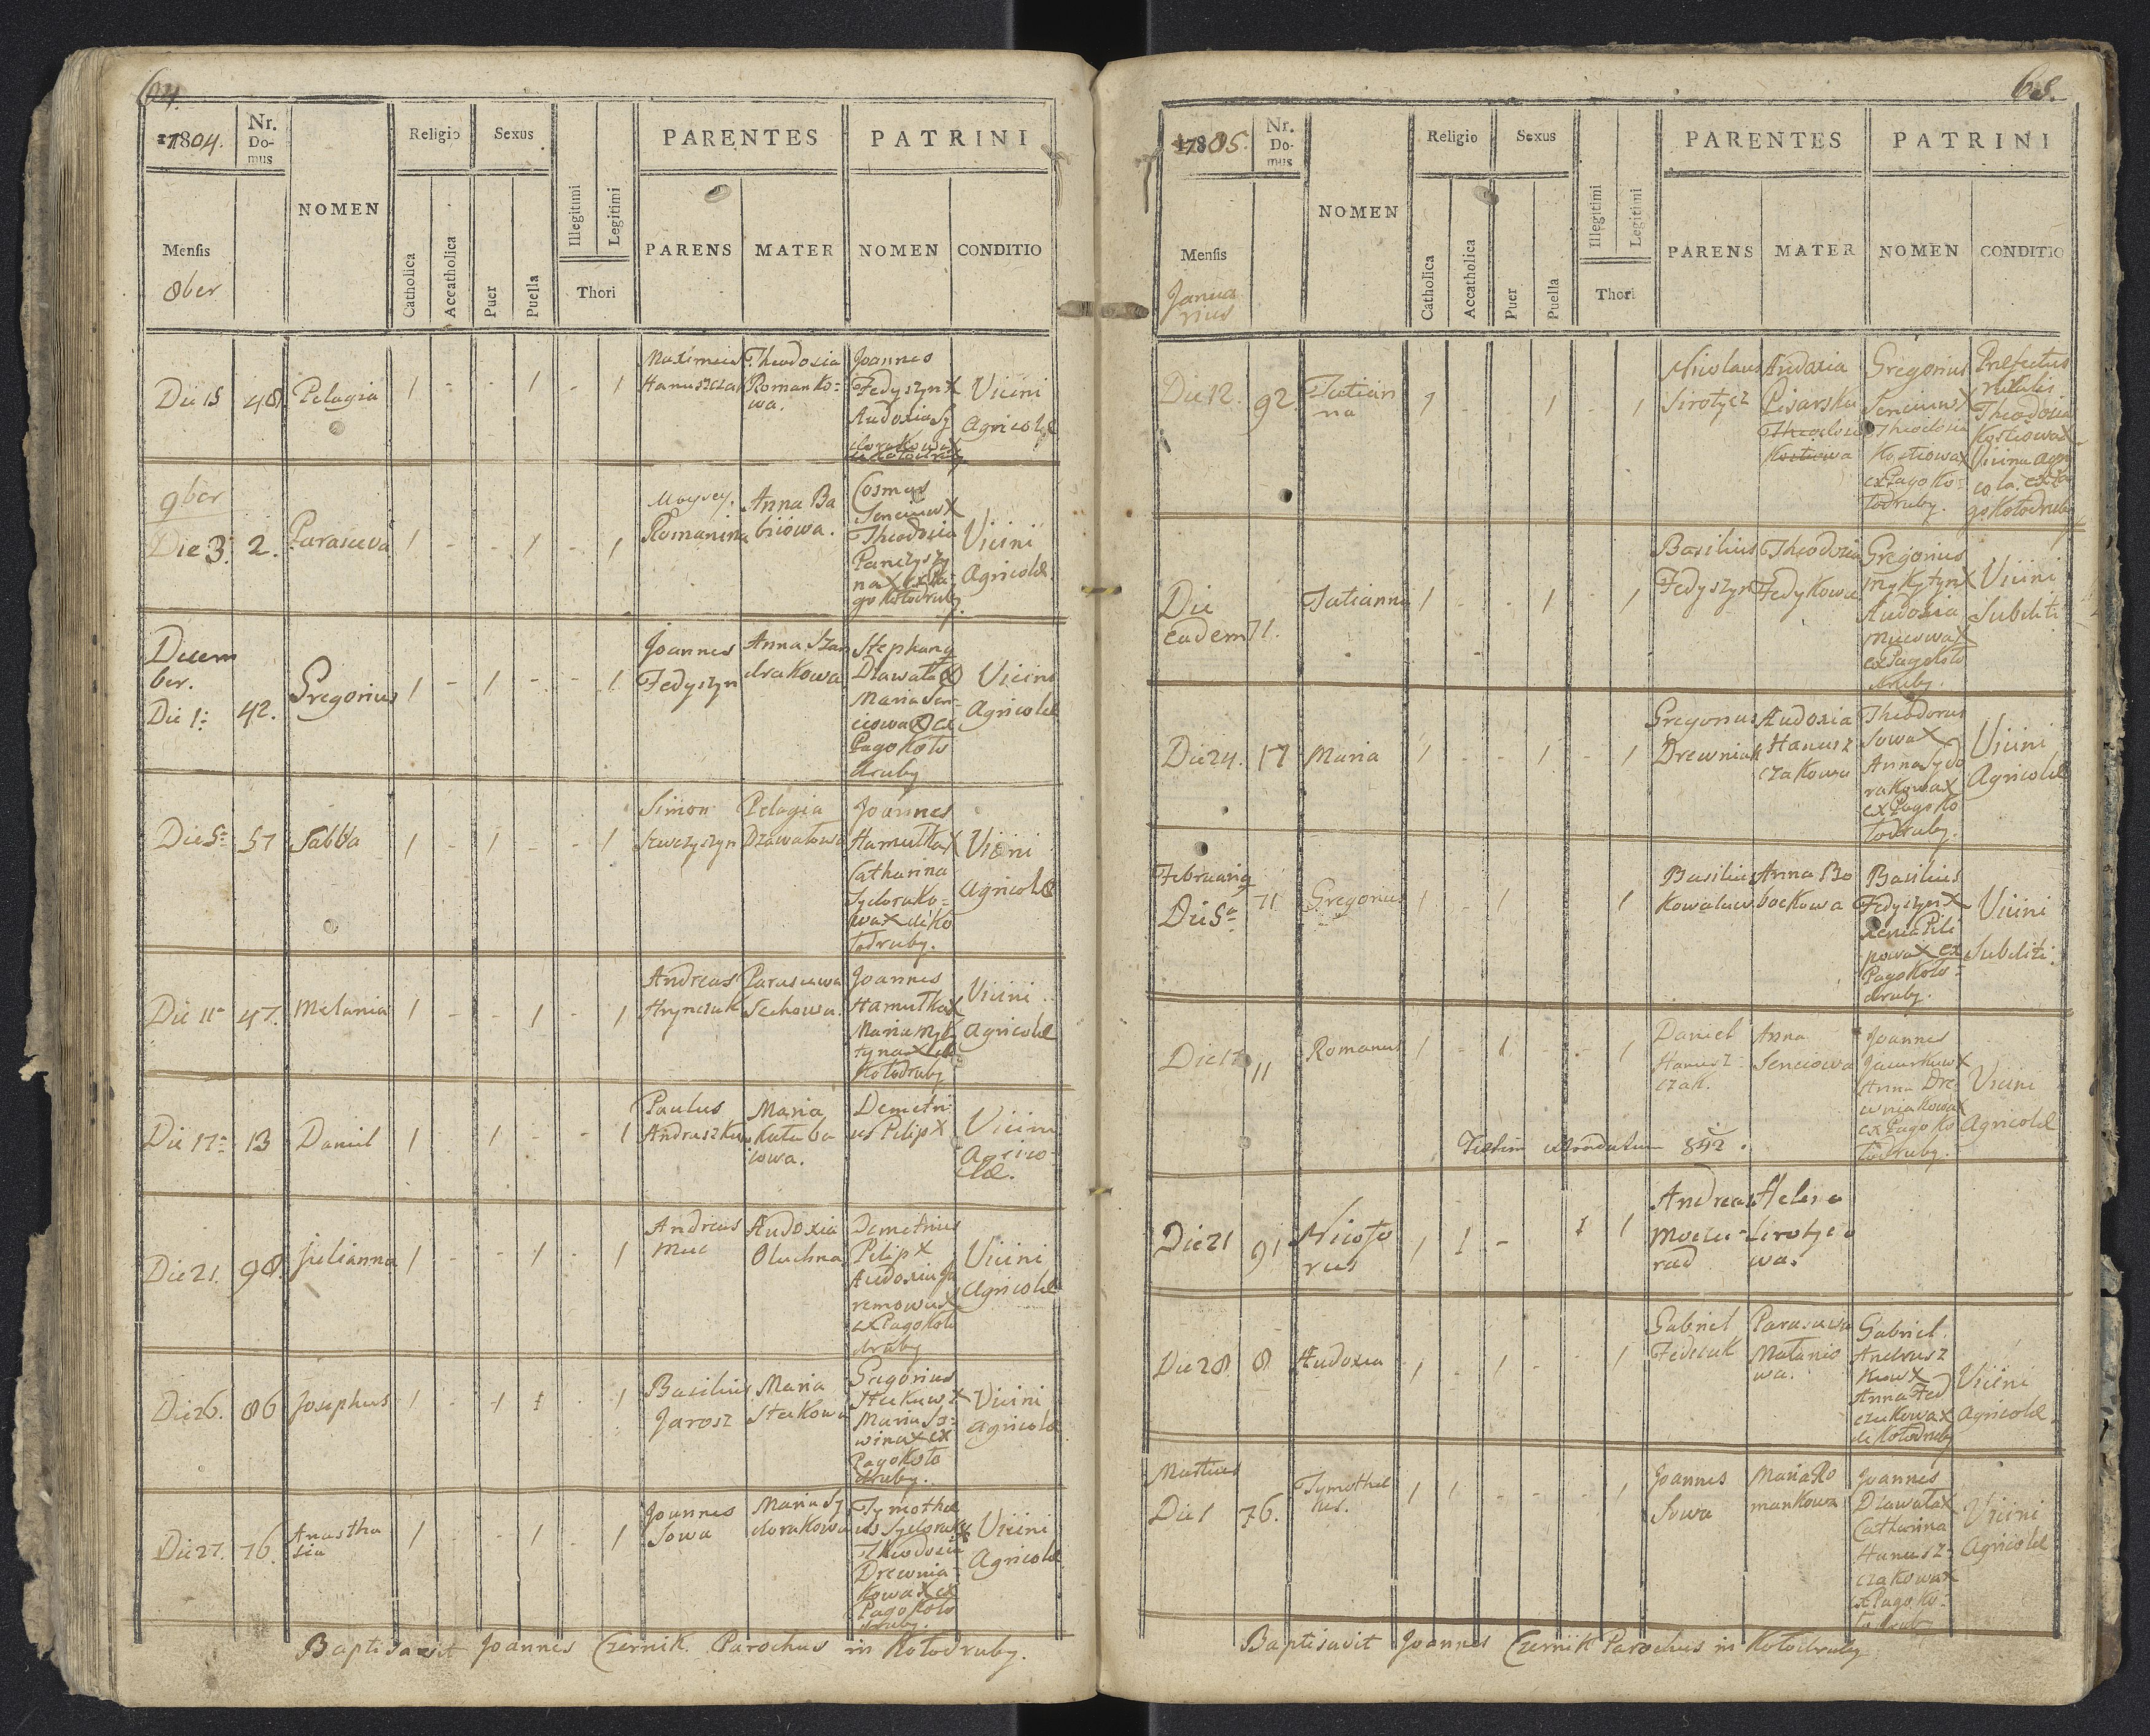 64.
1804.
Nr. Domus
NOMEN
Religio
Sexus
PARENTES
PATRINI
Mensis
8ber
Catholica
Accatholica
Puer
Puella
Illegitimi
Legitimi
Thori
PARENS
MATER
NOMEN
CONDITIO
Die 15 48 Pelagia 1 - - 1 - 1
Hanuszczak
Theodosia
Romanko=
wa.
Joannes
Fedyszyn X
Audoxia Sy
dorakowa X
Vicini
Agricolæ
9ber
Die 3. 2. Parasceva 1 - - 1 - 1
Romanina
Anna Ba
biiowa.
Cosmas
Senciuw X
Theodosia
Panczyszy
na X ex Pa-
go Kołodruby.
Vicini
Agricolæ.
Decem
ber.
Die 1: 42. Gregorius 1 - 1 - - 1
Joannes
Fedyszyn
Anna
drakowa
Maria Sen-
ciowa X ex
Pago Koło
druby
Vicini
Agricolæ
Die 5= 57 Sabba 1 - 1 - - 1
Simon
Pelagia
Joannes
Hamułka X
Catharina
Sydorako=
wa X de Ko
łodruby.
Vicini
Agricolæ
Die 11= 47. Melania 1 - - 1 - 1
Andreas
Hrynczuk
Parasceva
Joannes
Hamułka X
Maria Myk
tyna X de
Kołodruby
Vicini
Agricolæ
Die 17= 13 Daniel 1 - 1 - - 1
Paulus
Maria
Demetri
us Pilip X
Vicini
Agrico-
læ.
Die 21. 98. Julianna 1 - - 1 - 1
Andreas
Muc
Audoxia
Oluchna
Demetrius
Pilip X
Audoxia Ja
remowa X
ex Pago Koło
druby
Vicini
Agricolæ
Die 26. 86 Josephus 1 - 1 1 - 1
Basilius
Jarosz
Maria
Steckowa
Gregorius
Maria So-
wina X ex
Pago Koło
druby.
Vicini
Agricolæ
Die 27. 76. Anastha
sia 1 - - 1 - 1
Joannes
Sowa
Maria Sy
dorakowa
Tymothe
us Sydorak X
Theodosia
Drewnia-
kowa X ex
Pago Koło
druby.
Vicini
Agricolæ
Baptisavit Joannes Czernik. Parochus in Kołodruby.
1805.
Nr. Domus
NOMEN
Religio
Sexus
PARENTES
PATRINI
Mensis
Janua
rius
Catholica
Accatholica
Puer
Puella
Illegitimi
Legitimi
Thori
PARENS
MATER
NOMEN
CONDITIO
Die 12. 92. Tatian
na 1 - - 1 - 1
Nicolaus
Sirotycz
Audoxia
Pisarska
Gregorius
Senciuw X
Theodosia
Kostiowa X
ex Pago Ko-
łodruby.
Præfectus
Theodosia
Kostiowa X
Vicina agri
cola. ex Pa
go Kołodruby
Die
eadem 71. Tatianna 1 - - 1 - 1
Basilius
Fedyszyn
Theodosia
Fedykowa
Gregorius
Mykytyn X
Audoxia
Mucowa X
ex Pago Koło
druby.
Vicini
Subditi
Die 24. 17 Maria 1 - - 1 - 1
Gregorius
Drewniak
Audoxia
Hanusz
czakowa
Theodorus
Sowa X
Anna Sydo
rakowa X
ex Pago Ko
łodruby.
Vicini
Agricolæ
Februarius
Die 5a 71 Gregorius 1 - 1 1
Basilius
Kowaluw
Anna Bo
bockowa
Basilius
Fedyszyn X
Xenia Pili
powa X ex
Pago Koło-
druby.
Vicini
Subditi.
Die 11 Romanus 1 - 1 - - 1
Daniel
Hanusz-
czak.
Anna
Senciowa
Joannes
Anna Dre
wniakowa X
ex Pago Ko
łodruby.
Vicini
Agricolæ
Die 21 91 Nicefo
rus 1 1 - 1 1
Andreas
Helena
Sirotyczo
wa.
Die 28 8 Audoxia 1 - 1 - - 1
Gabriel
Fedczuk
Parasceva
Małanio
wa.
Gabriel
Andrusz
kow X
Anna Fed
czukowa X
de Kołodruby
Vicini
Agricolæ.
Martius
Die 1 76. Tymothe
us. 1 1 - - - 1
Joannes
Sowa
Maria Ro
mankowa
Joannes
Dławała X
Catharina
Hanusz-
czakowa X
ex Pago Ko-
łodruby
Vicini
Agricolæ
Baptisavit Joannes Czernik Parochus in Kołodruby